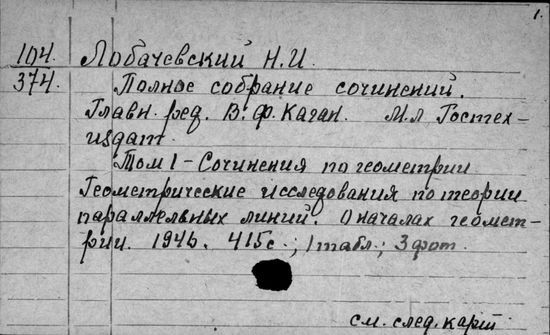 1.
104. Лобачевский Н.И.
374. Полное собрание сочинений.
Главн. ред. В. Ф. Каган. М.Л Гостех-
издат.
Том 1 - Сочинения по геометрии
Геометрические исследования по теории
параллельных линий. О началах геомет-
рии. 1946. 415 с.; 1 табл.; 3 фот.
см. след. карт